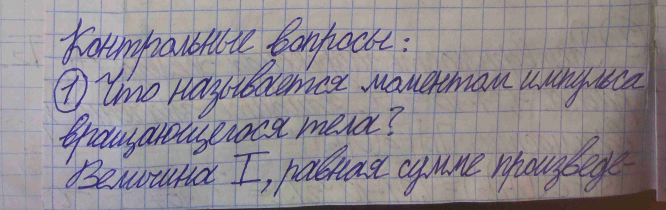 Контрольные вопросы:
① Что называется моментом импульса
вращающегося тела?
Величина I, равная сумме произведе-